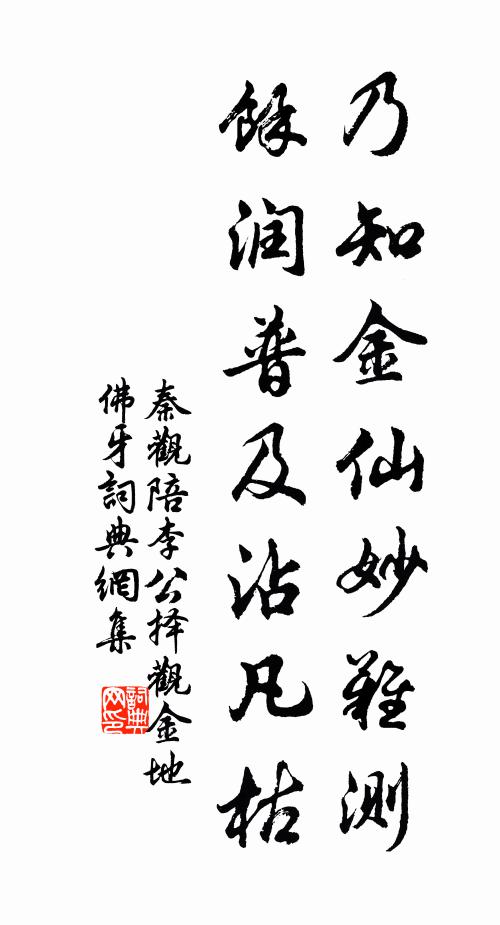 乃知金仙妙难测
餘润普及沾凡枯
秦觀陪李公择觀金地
佛牙詞典網集
詞典
网印